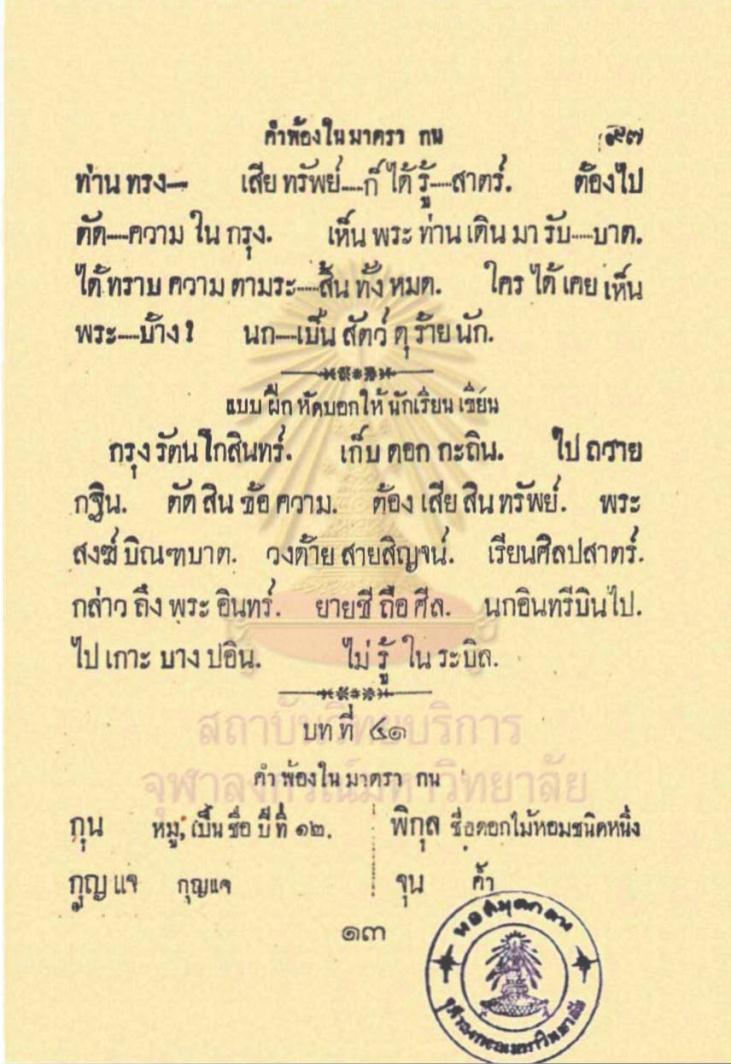 คำพ้องในมาตรา กน ๙๗
ท่าน ทรง— เสีย ทรัพย์—ก็ ได้ รู้—สาตร์. ต้องไป
ตัด—ความ ใน กรุง. เห็น พระ ท่าน เดิน มา รับ—บาต.
ได้ทราบ ความ ตามระ—สิ้น ทั้ง หมด. ใคร ได้ เคย เห็น
พระ—บ้าง? นก—เป็น สัตว์ ดุ ร้าย นัก.
แบบ ฝึก หัดบอกให้ นักเรียน เขียน
กรุง รัตนโกสินทร์. เก็บ ดอก กะถิน. ไป ถวาย
กฐิน. ตัด สิน ข้อ ความ. ต้อง เสีย สิน ทรัพย์. พระ
สงฆ์ บิณฑบาต. วงด้าย สายสิญจน์. เรียนศิลปสาตร์.
กล่าว ถึง พระ อินทร์. ยายชี ถือ ศีล. นกอินทรีบินไป.
ไป เกาะ บาง ปอิน. ไม่ รู้ ใน ระบิล.
บท ที่ ๔๑
คำ พ้อง ใน มาตรา กน
กุน หมู, เป็น ชื่อ ปี ที่ ๑๒. พิกุล ชื่อดอกไม้หอมชนิดหนึ่ง
กุญ แจ กุญแจ จุน ค้ำ
๑๓
สถาบันวิทยบริการ
จุฬาลงกรณ์มหาวิทยาลัย
หอสมุดกลาง
จุฬาลงกรณมหาวิทยาลัย